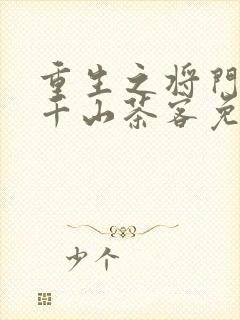 重生之将门
千山茶客免
少个